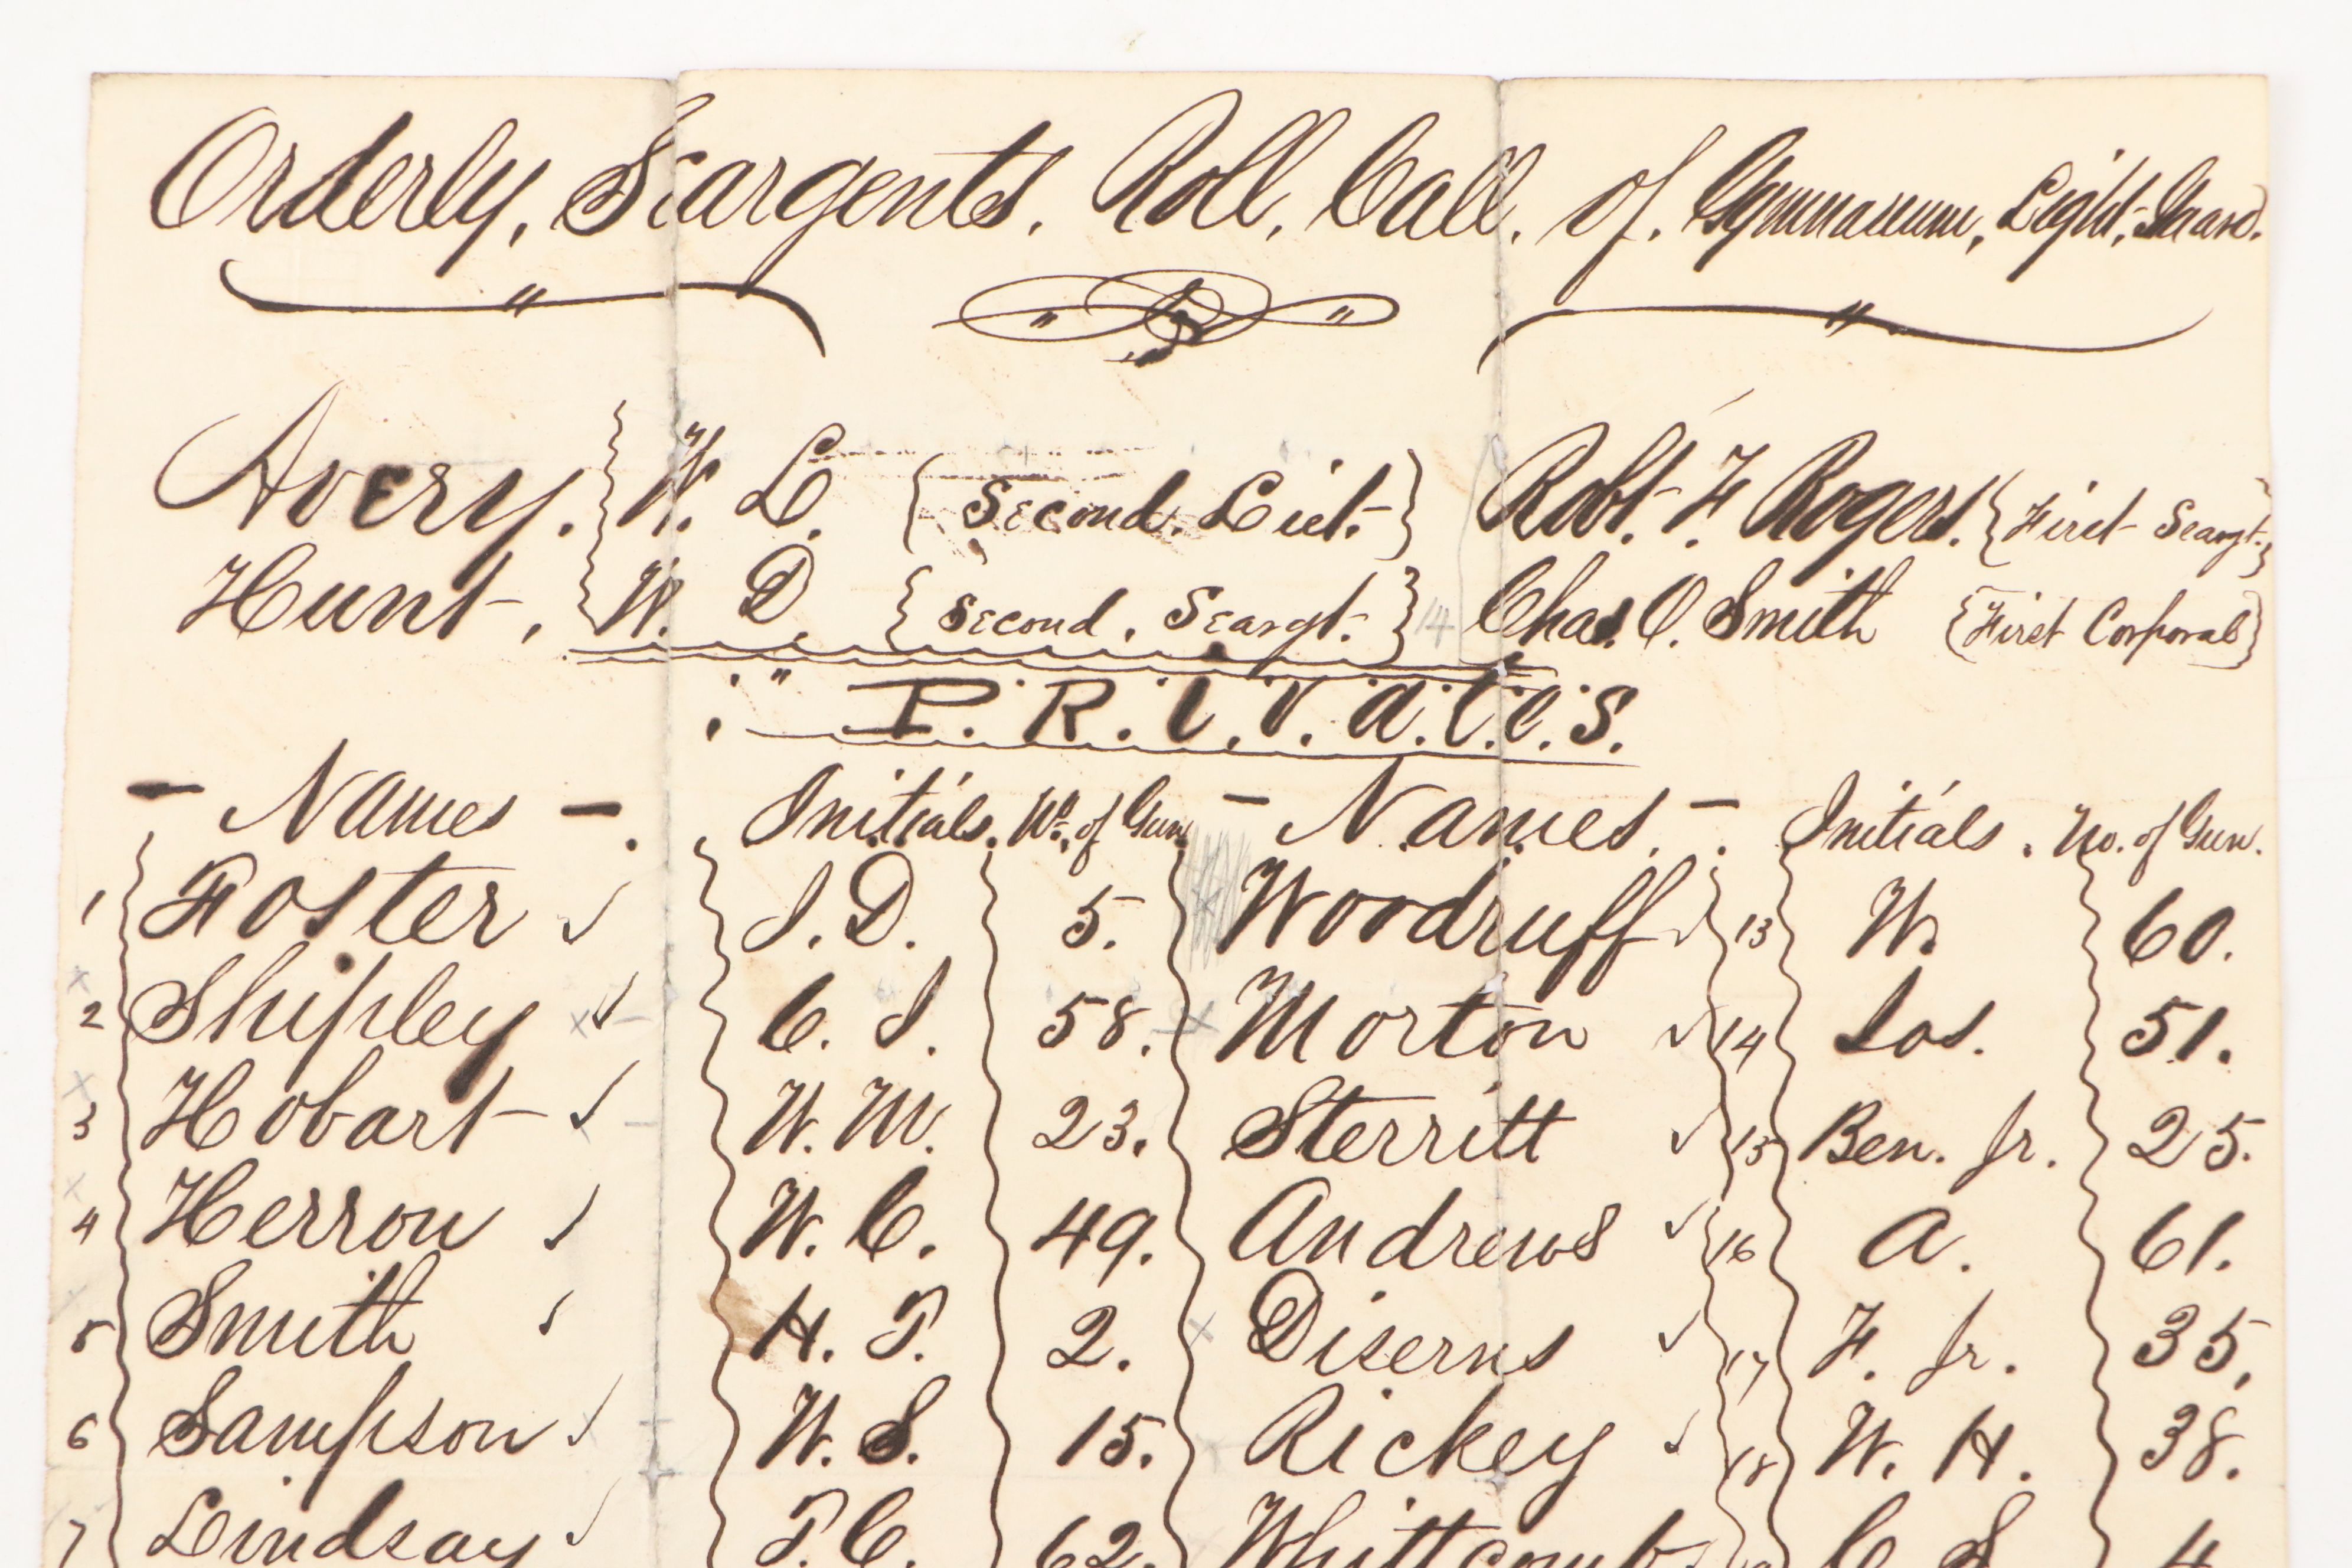 Orderly, Seargents. Roll. Call. of. Gymnasium, Light, Guard.
Avery. W. L. {Second. Lieut.} Robt. F. Rogers. {First Seargt.}
Hunt, W. D. {Second. Seargt.} 14 Chas. O. Smith {First Corporal}
P.R.i.v.a.t.e.s.
- Names -. Initials. No. of Gun - Names. -. Initials. No. of Gun.
1 Foster ✓ J. D. 5. x Woodruff ✓ 13 W. 60.
x 2 Shipley x ✓ C. J. 58. x Morton ✓ 14 Jos. 51.
x 3 Hobart ✓ W. M. 23. Sterritt ✓ 15 Ben. Jr. 25.
x 4 Herron ✓ W. C. 49. Andrews ✓ 16 A. 61.
5 Smith ✓ H. T. 2. x Diserns ✓ 17 F. Jr. 35,
6 Sampson ✓ W. S. 15. Rickey ✓ 18 W. H. 38.
7 Lindsay ✓ T. C. 62. Whittcomb C. S. 4